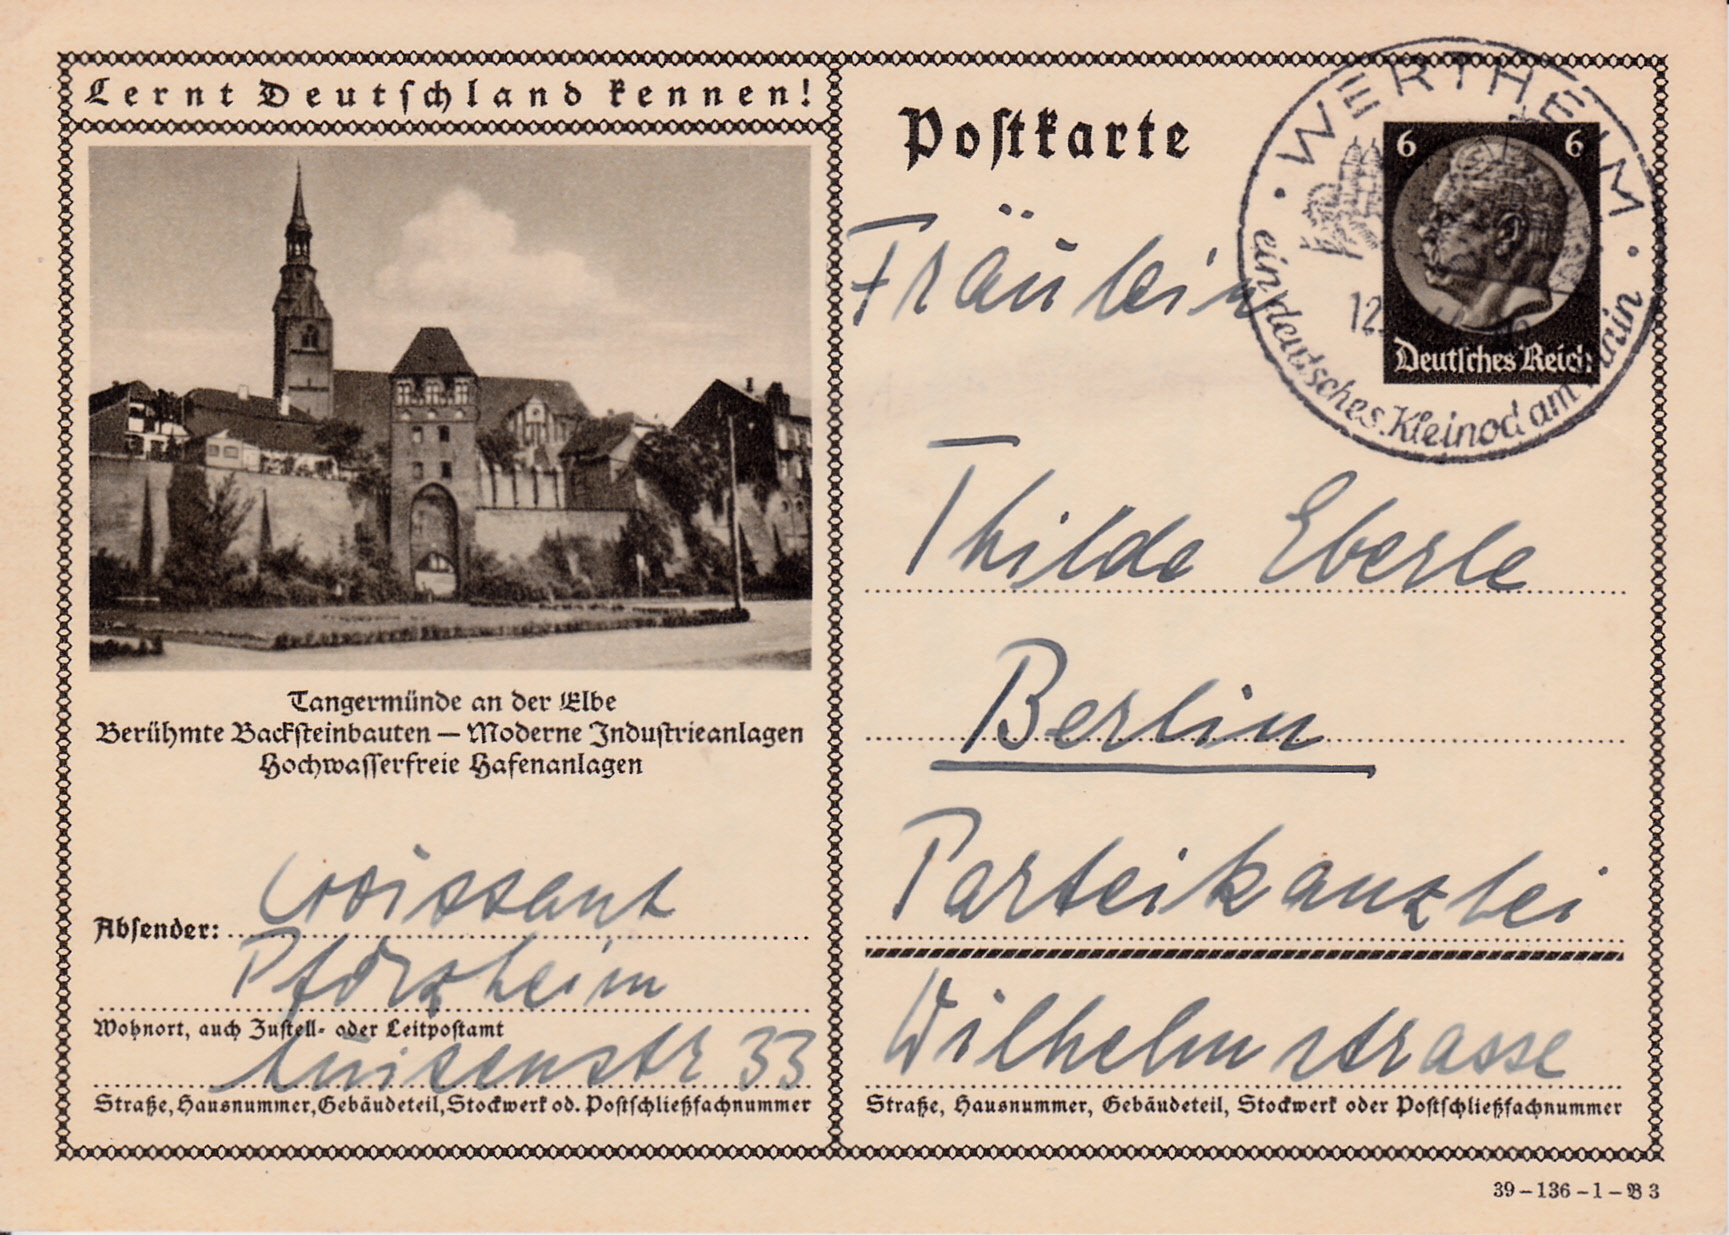 Lernt Deutschland kennen!
Tangermünde an der Elbe
Berühmte Backsteinbauten — Moderne Industrieanlagen
Hochwasserfreie Hafenanlagen
Absender: Croissant
Pforzheim
Wohnort, auch Zustell- oder Leitpostamt
Luisenstr 33
Straße, Hausnummer, Gebäudeteil, Stockwerk od. Postschließfachnummer
Postkarte
WERTHEIM
ein deutsches Kleinod am Main
12.
6 6
Deutsches Reich
Fräulein
Thilde Eberle
Berlin
Parteikanzlei
Wilhelmstrasse
Straße, Hausnummer, Gebäudeteil, Stockwerk oder Postschließfachnummer
39–136–1–B 3